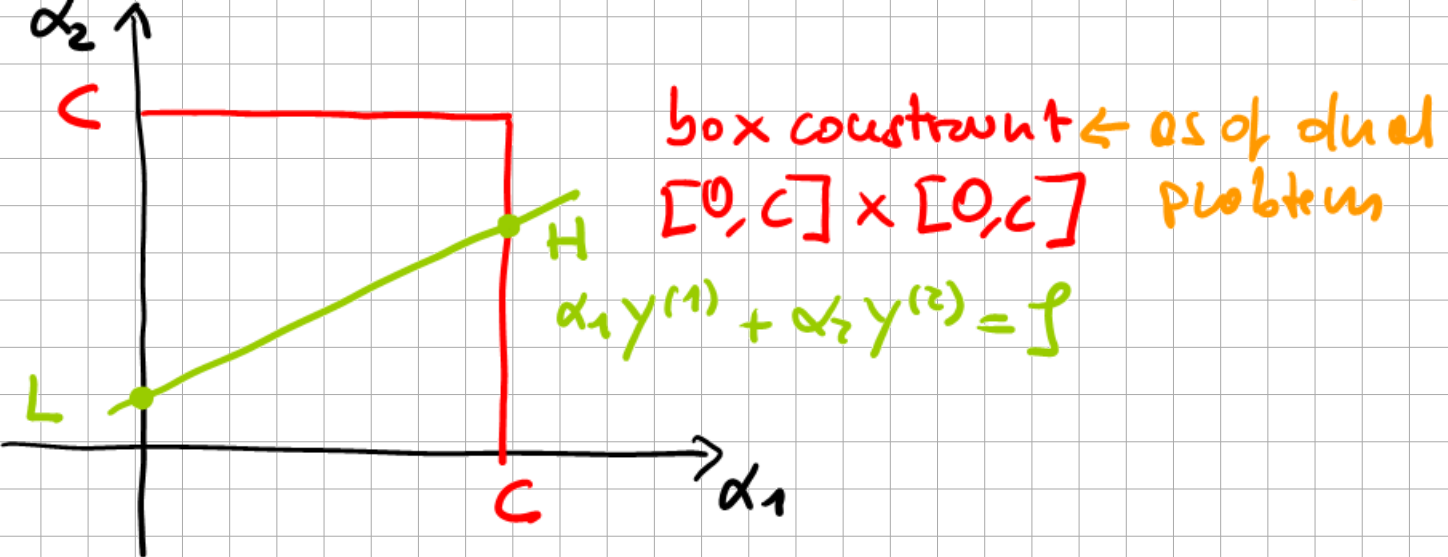 α₂
C
box constraint ← as of dual
[0,C] × [0,C] problem
H
α₁y⁽¹⁾ + α₂y⁽²⁾ = ζ
L
C
α₁